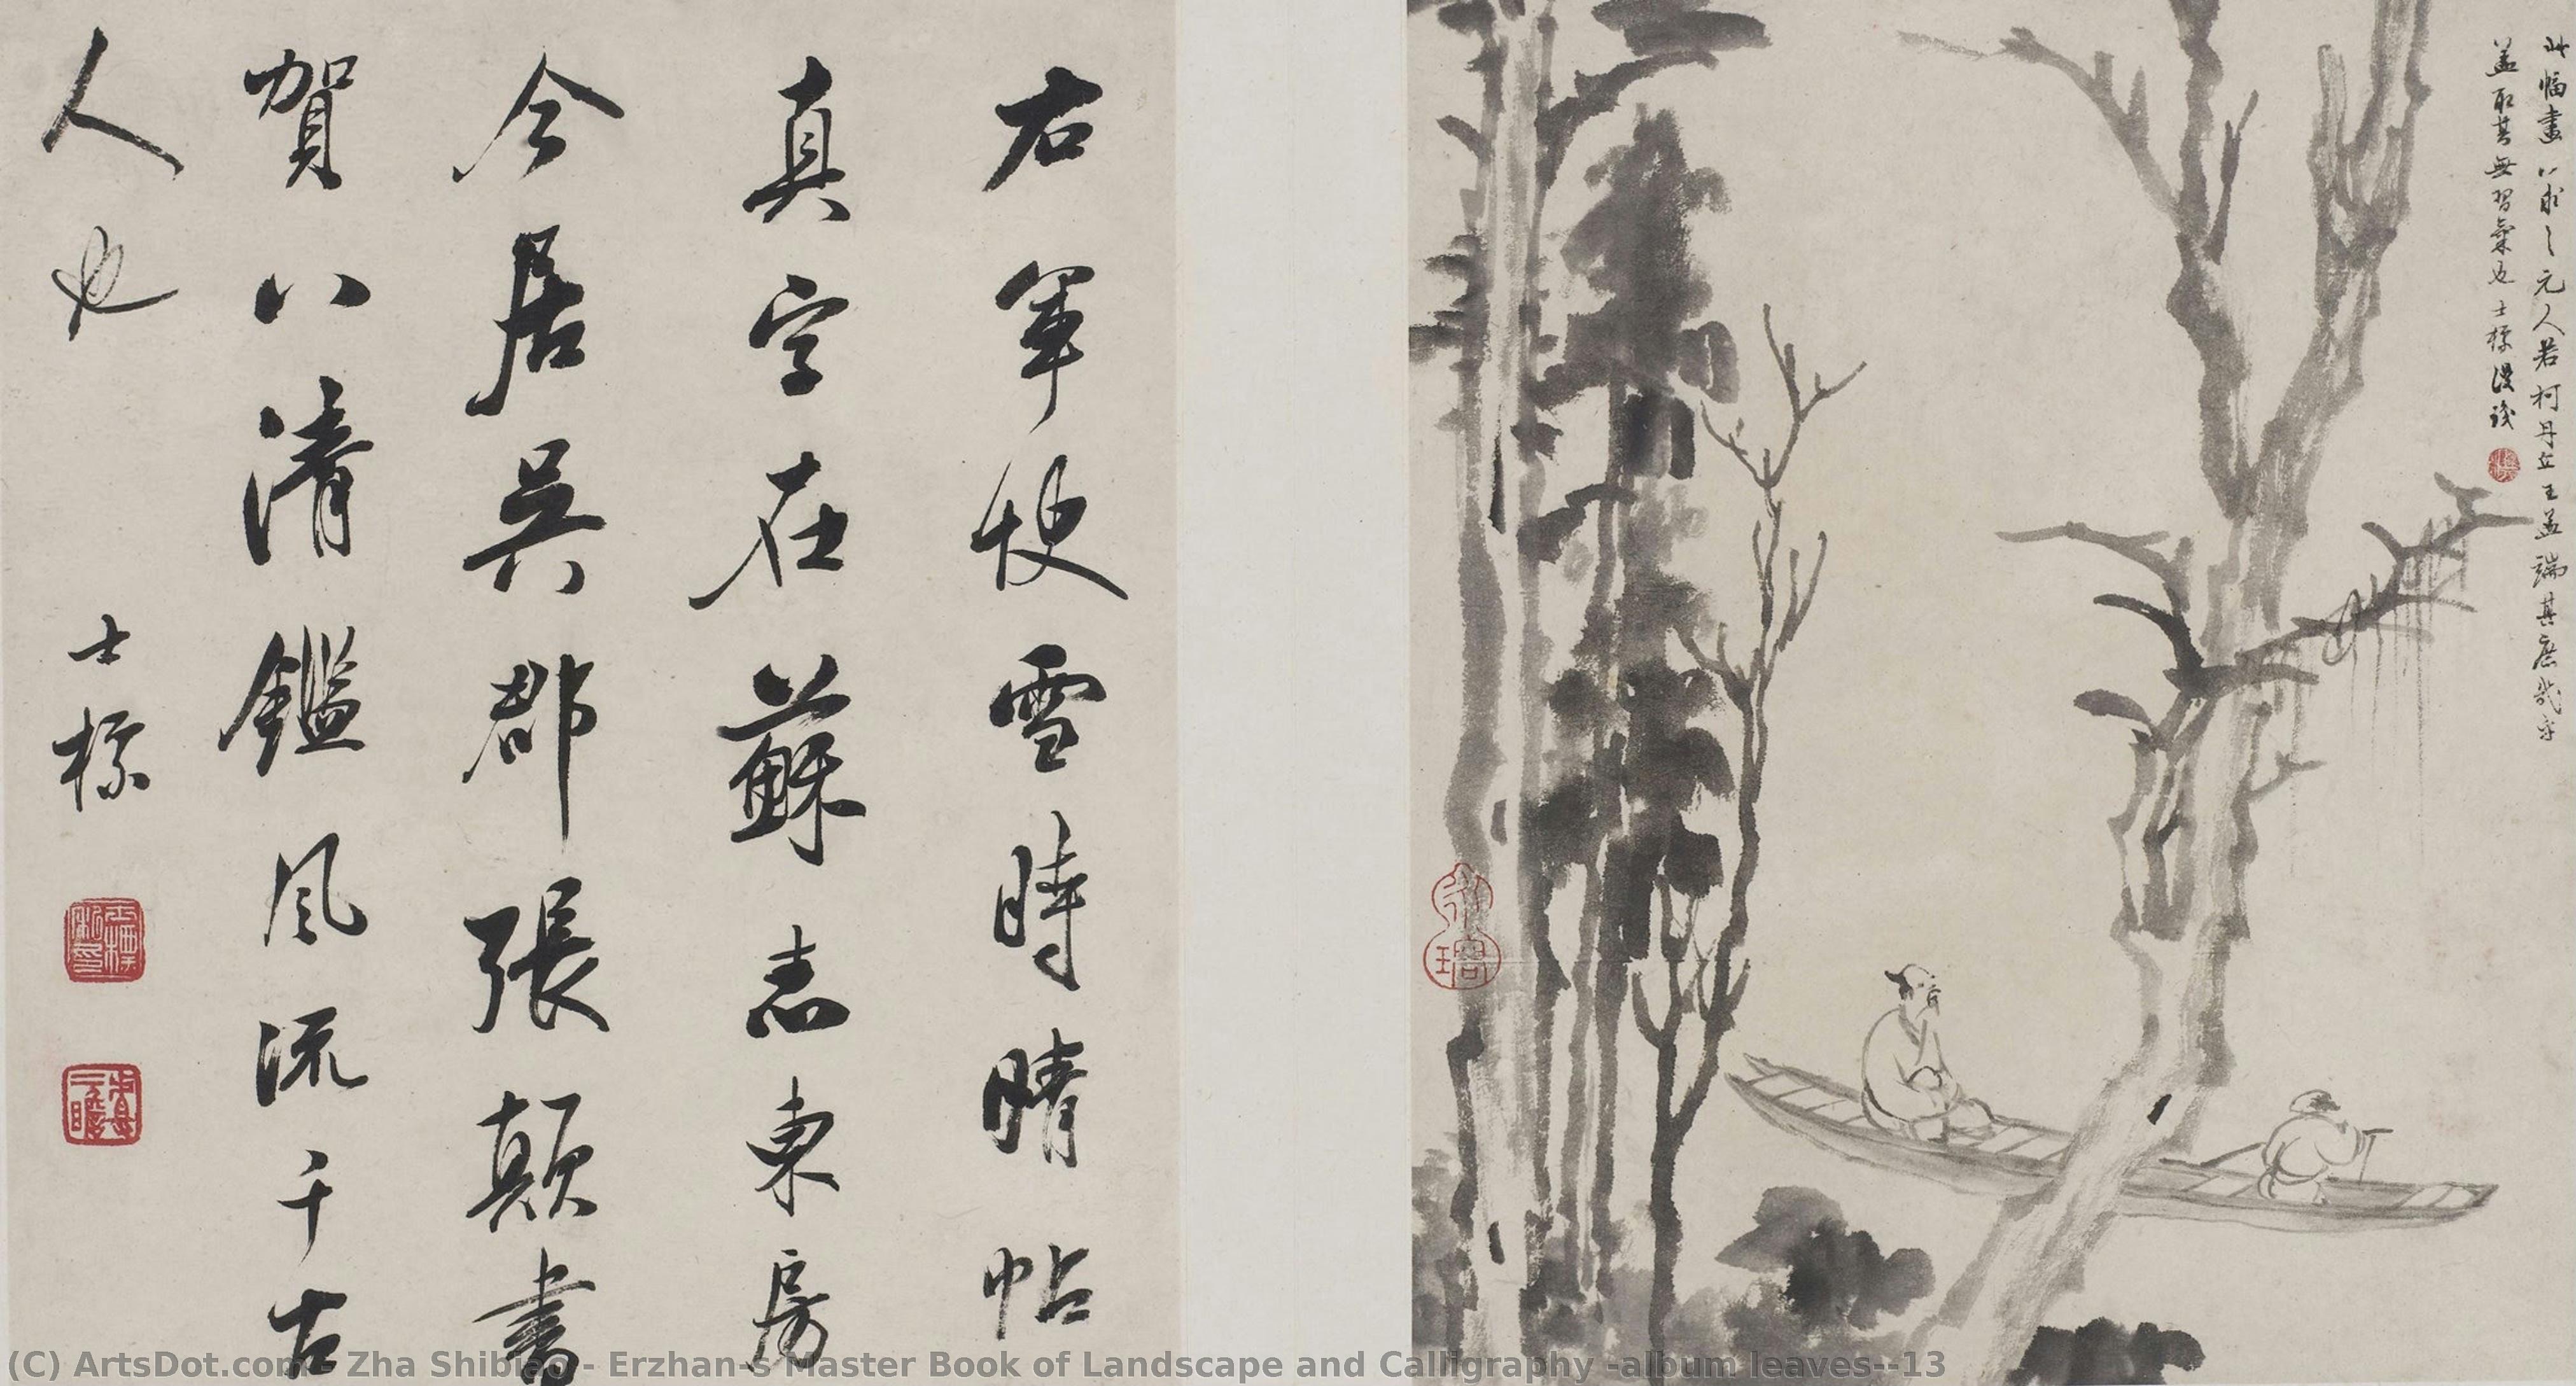 此幅畫以求之元人若柯丹丘王孟端其庶幾乎
蓋取其無習氣也士標漫識
永瑢
右軍快雪時晴帖
真字在蘇志東房
今居吳郡張顛書
賀八清鑑風流千古
人也
士標
士標私印
查二瞻
(C) ArtsDot.com - Zha Shibiao - Erzhan-s Master Book of Landscape and Calligraphy -album leaves--13